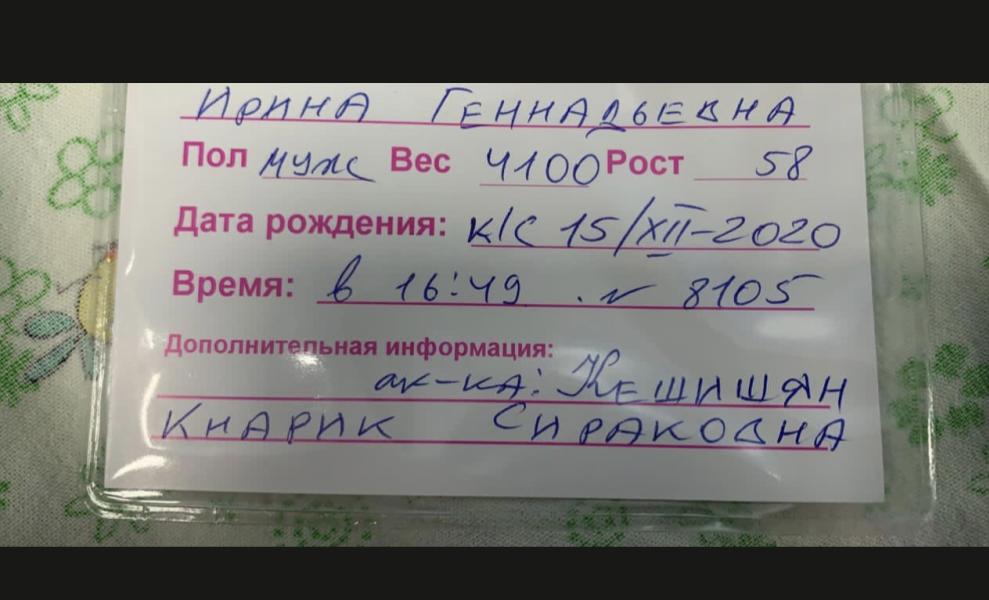 Ирина Геннадьевна
Пол муж Вес 4100 Рост 58
Дата рождения: к/с 15/XII-2020
Время: в 16:49 . N 8105
Дополнительная информация:
ак-ка: Кешишян
Кнарик Сираковна